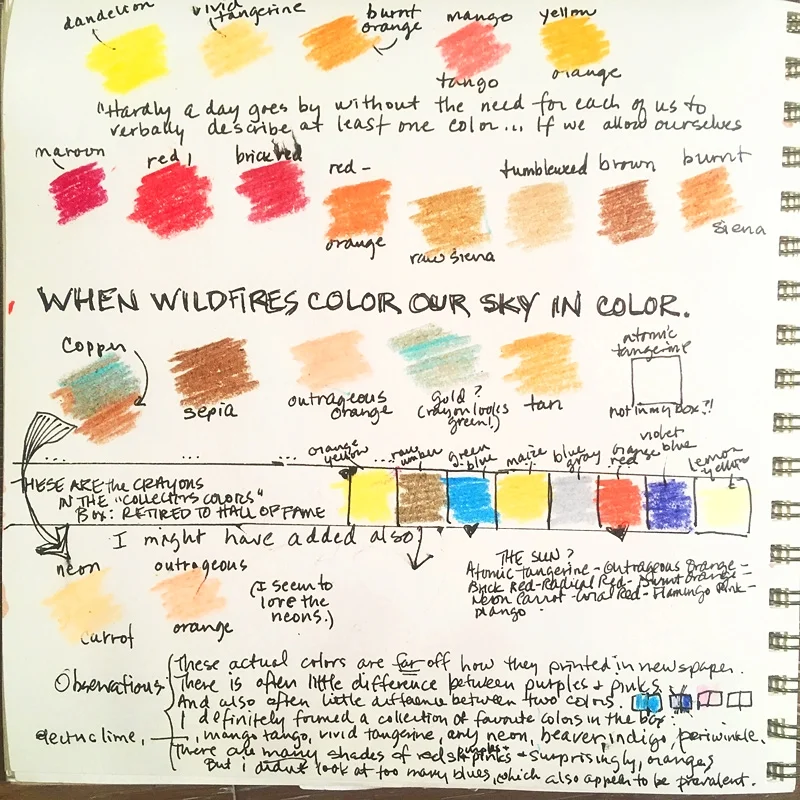 dandelion
vivid tangerine
burnt orange
mango tango
yellow orange
"Hardly a day goes by without the need for each of us to
verbally describe at least one color... If we allow ourselves
maroon
red!
brick red
red-orange
raw siena
tumbleweed
brown
burnt siena
WHEN WILDFIRES COLOR OUR SKY IN COLOR.
copper
sepia
outrageous orange
gold?
(crayon looks
green!)
tan
atomic
tangerine
not in my box?!
... ... ...
orange yellow
raw umber
green blue
maize
blue gray
orange red
violet blue
lemon yellow
THESE ARE the CRAYONS
IN THE "COLLECTORS COLORS"
BOX: RETIRED TO HALL OF FAME
I might have added also
neon carrot
outrageous orange
(I seem to
love the
neons.)
THE SUN?
Atomic Tangerine - Outrageous Orange -
Brick Red - Radical Red - Burnt Orange -
Neon Carrot - Coral Red - Flamingo Pink -
Mango
Observations:
These actual colors are far off how they printed in newspaper.
There is often little difference between purples + pinks.
And also often little difference between two colors.
I definitely formed a collection of favorite colors in the box:
electric lime, mango tango, vivid tangerine, any neon, beaver, indigo, periwinkle.
There are many shades of reds + pinks + purples + surprisingly, oranges
But I didn't look at too many blues, which also appear to be prevalent.